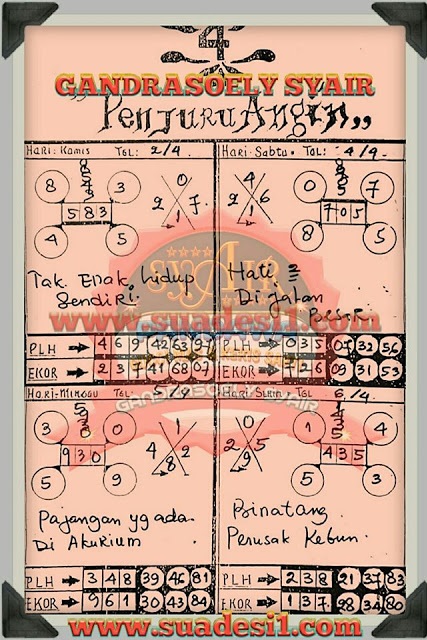 4
GANDRASOELY SYAIR
"Penjuru Angin,,
HARI: Kamis TGL: 2/4.
8 3
5 8 3
4 5
0
2 7
1
Tak Enak hidup
Sendiri.
PLH 4 6 9 42 63 97
EKOR 2 3 7 41 68 07
HARI: Sabtu. TGL: 4/9.
0 7
7 0 5
8
4
2 6
1
Hati =
Di jalan
Besar.
PLH 0 3 5 07 32 56
EKOR 7 2 6 09 31 53
SYAIR
www.suadesi1.com
GANDRASOELY SYAIR
HARI: Minggu
3 0
9 3 0
5 9
1
4 8
2
Pajangan yg ada.
Di Akurium
PLH 3 4 8 39 46 81
EKOR 9 6 1 30 43 84
HARI: Senin TGL 6/4.
1 4
4 3 5
5 3
0
2 5
9
Binatang
Perusak Kebun.
PLH 2 3 8 21 37 83
EKOR 1 3 7. 28 34 80
www.suadesi1.com